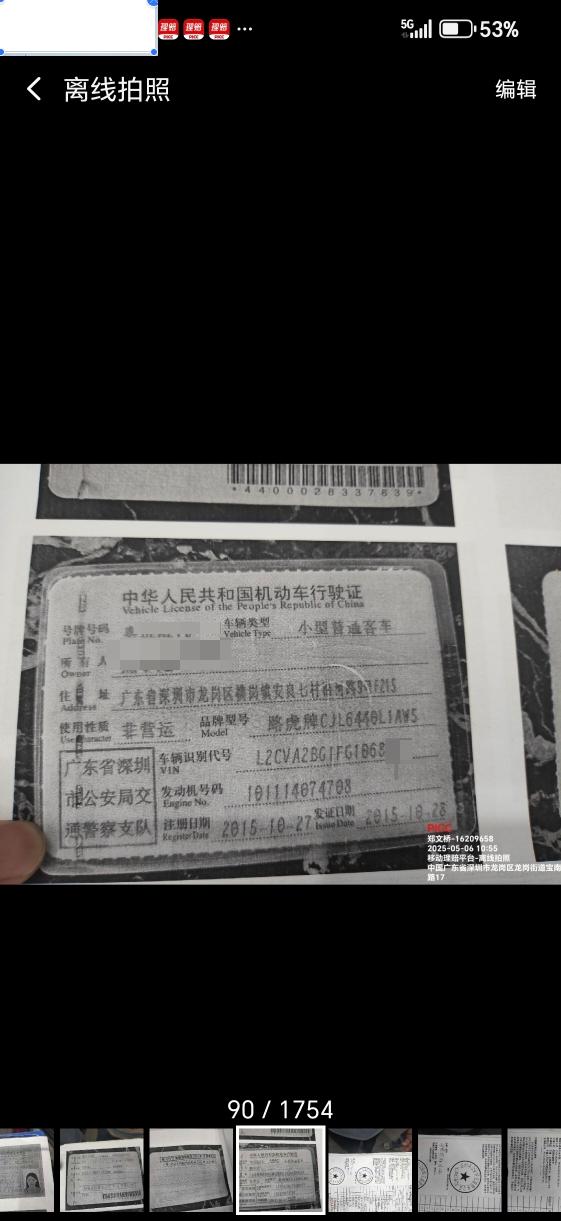 理赔 理赔 理赔 ... 5G 53%
PICC PICC PICC
离线拍照 编辑
*4400028337839*
中华人民共和国机动车行驶证
Vehicle License of the People's Republic of China
号牌号码 车辆类型 小型普通客车
Plate No. Vehicle Type
所有人
Owner
住址 广东省深圳市龙岗区横岗镇安良七村
Address
使用性质 非营运 品牌型号 路虎牌CJL6440L1AW5
Use Character Model
广东省深圳 车辆识别代号 L2CVA2BG1FG1068
VIN
市公安局交 发动机号码 101114074708
Engine No.
通警察支队 注册日期 2015-10-27 发证日期 2015-10-28
Register Date Issue Date
PICC
郑文桥-16209658
2025-05-06 10:55
移动理赔平台-离线拍照
中国广东省深圳市龙岗区龙岗街道宝南
路17
90 / 1754